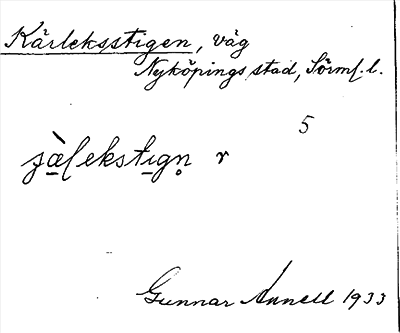 Kärleksstigen, väg
Nyköpings stad, Sörml. l.
5
r
Gunnar Annell 1933